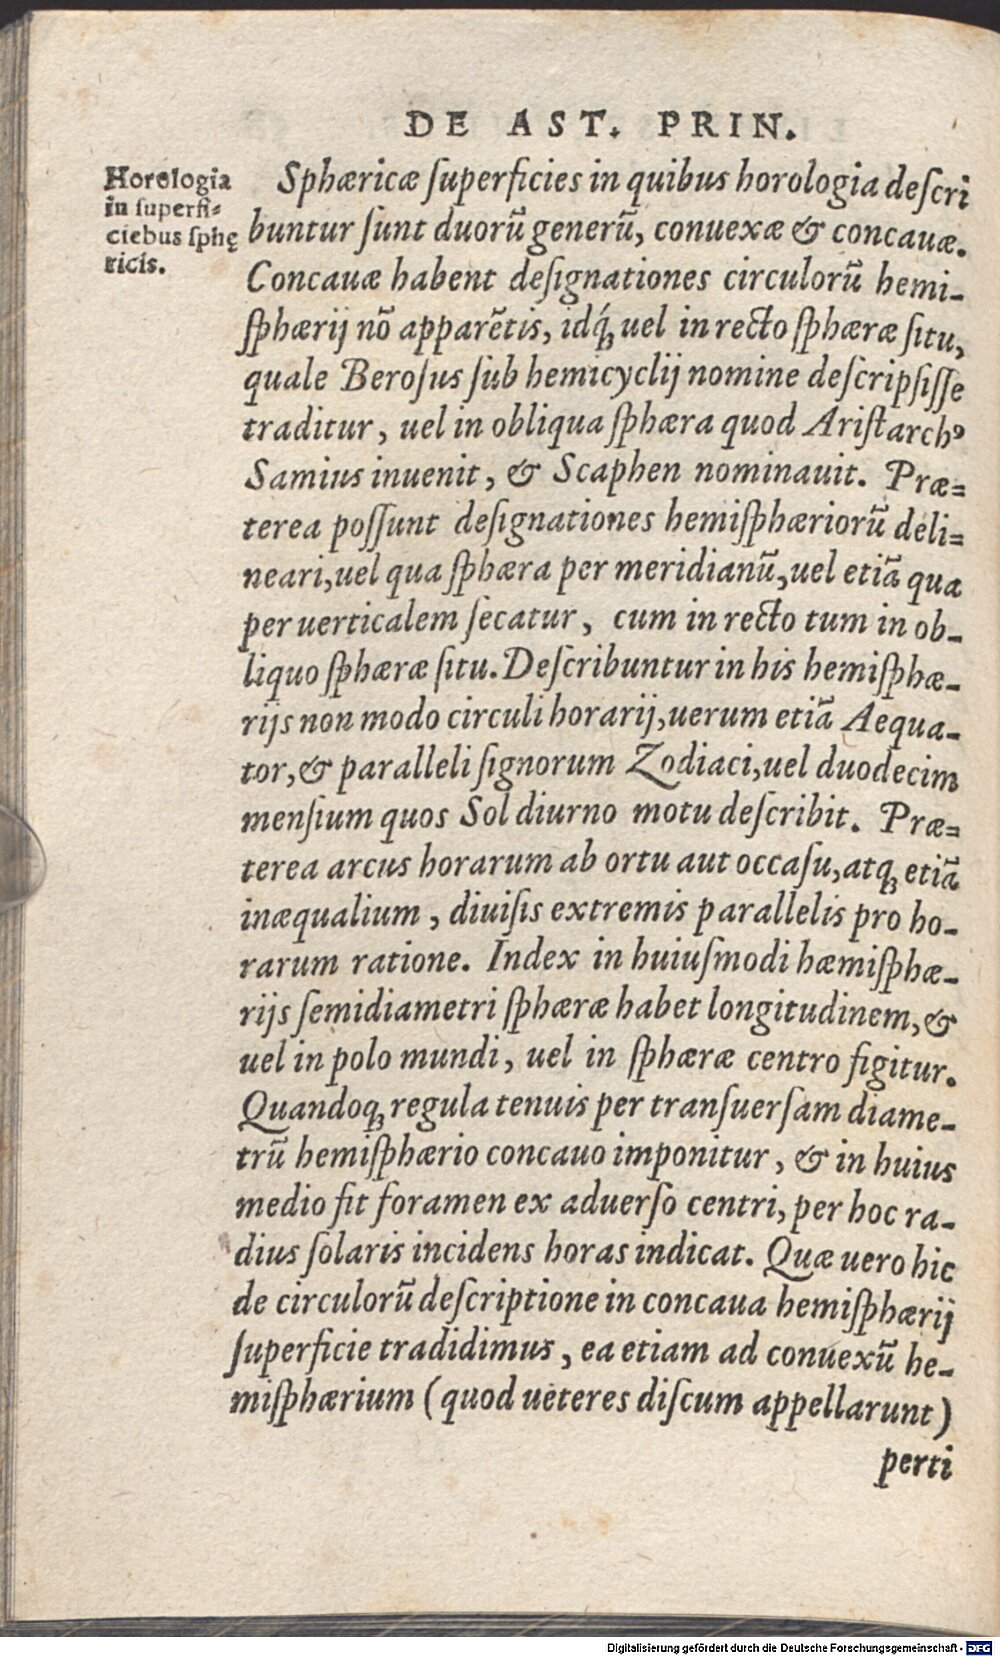 DE AST. PRIN.
Horologia
in superfi=
ciebus sphę
ricis.
Sphæricæ superficies in quibus horologia descri
buntur sunt duorũ generũ, conuexæ & concauæ.
Concauæ habent designationes circulorũ hemi-
sphærij nõ apparẽtis, idq́; uel in recto sphæræ situ,
quale Berosus sub hemicyclij nomine descripsisse
traditur, uel in obliqua sphæra quod Aristarchꝰ
Samius inuenit, & Scaphen nominauit. Præ=
terea possunt designationes hemisphæriorũ deli=
neari, uel qua sphæra per meridianũ, uel etiã qua
per uerticalem secatur, cum in recto tum in ob-
liquo sphæræ situ. Describuntur in his hemisphæ-
rijs non modo circuli horarij, uerum etiã Aequa-
tor, & paralleli signorum Zodiaci, uel duodecim
mensium quos Sol diurno motu describit. Præ=
terea arcus horarum ab ortu aut occasu, atq; etiã
inæqualium, diuisis extremis parallelis pro ho-
rarum ratione. Index in huiusmodi hæmisphæ-
rijs semidiametri sphæræ habet longitudinem, &
uel in polo mundi, uel in sphæræ centro figitur.
Quandoq; regula tenuis per transuersam diame-
trũ hemisphærio concauo imponitur, & in huius
medio fit foramen ex aduerso centri, per hoc ra-
dius solaris incidens horas indicat. Quæ uero hic
de circulorũ descriptione in concaua hemisphærij
superficie tradidimus, ea etiam ad conuexũ he-
misphærium (quod ueteres discum appellarunt)
perti
Digitalisierung gefördert durch die Deutsche Forschungsgemeinschaft - DFG